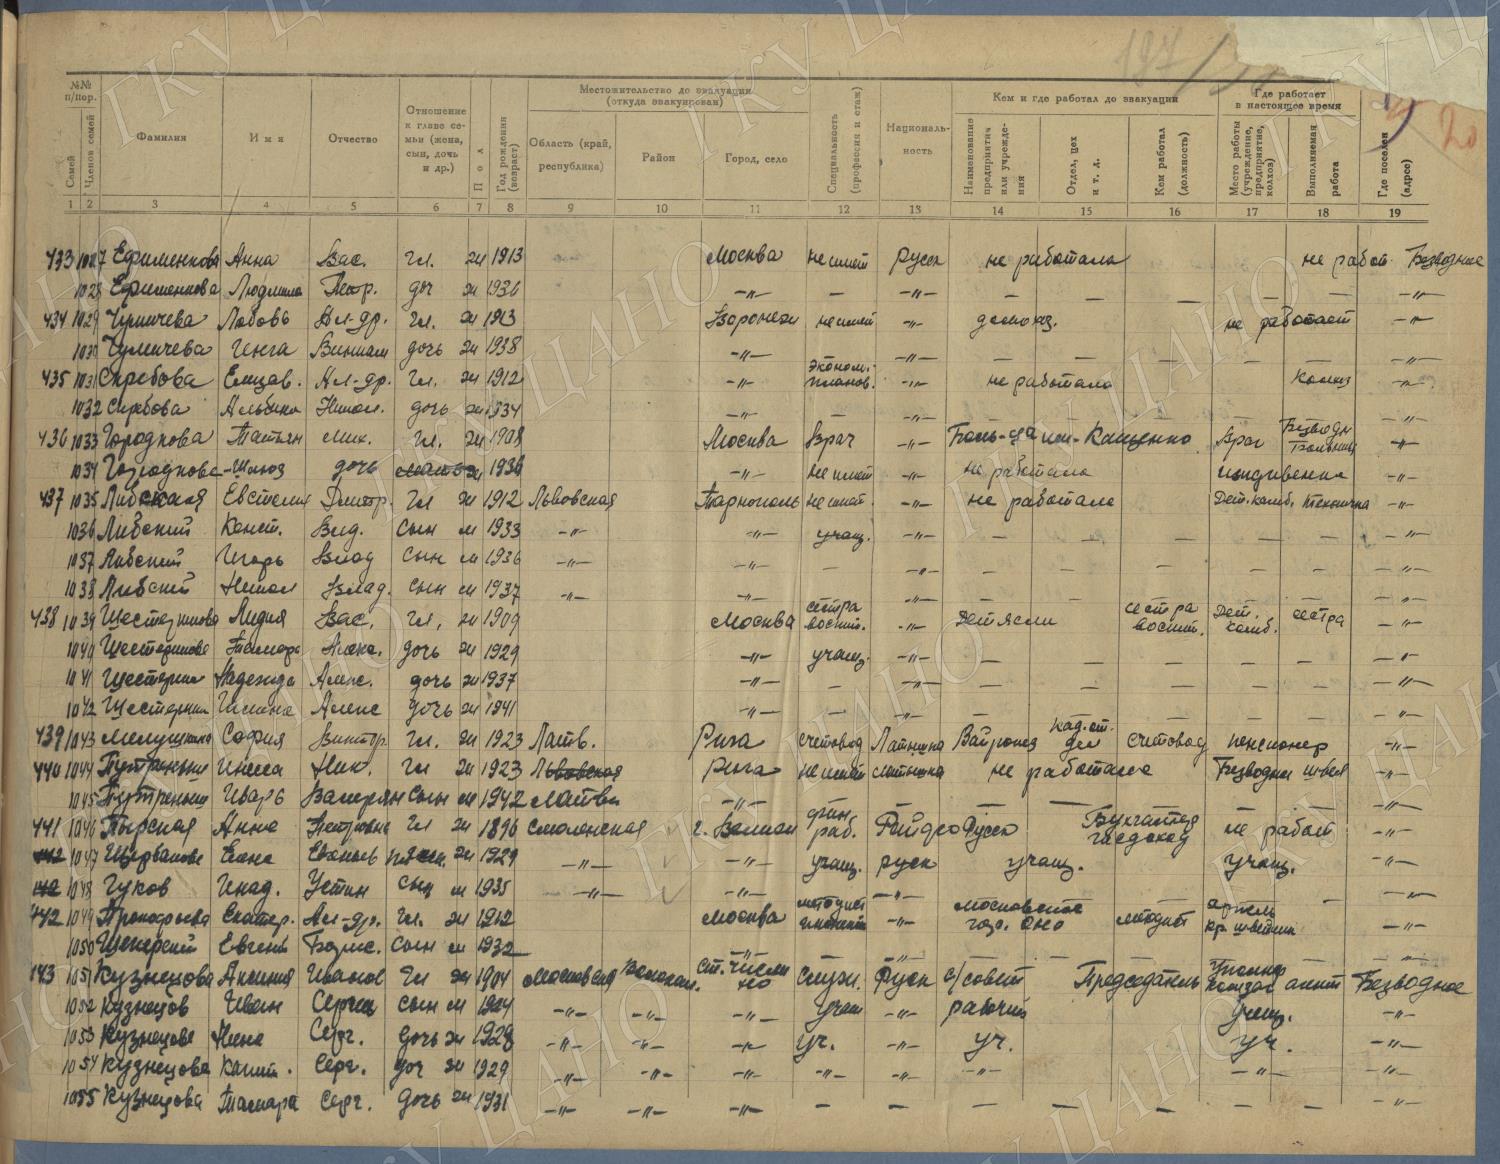 197
20
№№ п/пор.
Семей
Членов семей
Фамилия
Имя
Отчество
Отношение к главе семьи (жена, сын, дочь и др.)
Пол
Год рождения (возраст)
Местожительство до эвакуации (откуда эвакуирован)
Область (край, республика)
Район
Город, село
Специальность (профессия и стаж)
Национальность
Кем и где работал до эвакуации
Наименование предприятия или учреждения
Отдел, цех и т. д.
Кем работал (должность)
Где работает в настоящее время
Место работы (учреждение, предприятие, колхоз)
Выполняемая работа
Где поселен (адрес)
1 2 3 4 5 6 7 8 9 10 11 12 13 14 15 16 17 18 19
433 1027 Ефименкова Анна Вас. гл. ж 1913 Москва не имеет Русск не работала не работ Безводное
1028 Ефименкова Людмила Петр. доч ж 1936 -"- — -"- — — — — — -"-
434 1029 Чумичева Любовь Ал-др. гл. ж 1913 Воронеж не имеет -"- домохоз. не работает -"-
1030 Чумичева Инга дочь ж 1938 -"- — -"- — — — — — -"-
435 1031 Скребова Елизав. Ал-др. гл. ж 1912 -"- эконом. планов. -"- не работала колхоз -"-
1032 Скребова Альбина Никол. дочь ж 1934 -"- — -"- — — — — — -"-
436 1033 Городкова Татьян Мих. гл. ж 1908 Москва Врач -"- Боль-ца им-Кащенко Врач Безводн Больница -"-
1034 Городкова дочь ж 1936 -"- не имет -"- не работала иждивенка -"-
437 1035 Ливская Евгения Дмитр. Гл ж 1912 Львовская Тарнополь не имет. -"- не работала Дет. комб. Техничка -"-
1036 Ливский Конст. Влд. сын м 1933 -"- -"- учащ. -"- — — — — — -"-
1037 Ливский Игорь Влад сын м 1936 -"- -"- — -"- — — — — — -"-
1038 Ливский Никол Влад. сын м 1937 -"- -"- — -"- — — — — — -"-
438 1039 Лидия Вас. Гл. ж 1909 Москва сестра воспит. -"- Детясли сестра воспит. Дет. комб. сестра -"-
1040 Тамара Алекс. дочь ж 1929 -"- учащ. -"- — — — — — -"-
1041 Надежда Алекс. дочь ж 1937 -"- — -"- — — — — — -"-
1042 Алекс дочь ж 1941 -"- — -"- — — — — — -"-
439 1043 София Виктор. Гл. ж 1923 Латв. Рига счетовод Латышка счетовод пенсионер -"-
440 1044 Инеса Ник. Гл ж 1923 Львовская Рига не имет латышка не работала Безводное швея -"-
1045 Иварь Валерян сын м 1942 Латви -"- — — — — — — -"-
441 1046 Пырская Анна Петровна Гл ж 1896 Смоленская фин раб. Русск Бухгалтер не работ -"-
1047 Щербакова Елена ж 1929 -"- -"- учащ. руск учащ. учащ. -"-
1048 Гуков Генад. Устин сын м 1935 -"- -"- — -"- — — — — — -"-
442 1049 Прокофьева Екатер. Ал-др. Гл. ж 1912 Москва методист -"- Московское гор. ОНО методист артель -"-
1050 Евгений Борис. сын м 1932 -"- — -"- — — — — — -"-
443 1051 Кузнецова Аксиния Иванов Гл ж 1904 Московская служ. Руск с/совет Председатель агент Безводное
1052 Кузнецов Иван Сергее сын м -"- -"- -"- учащ -"- рабочий учащ. -"-
1053 Кузнецова Нина Серг. дочь ж 1928 -"- -"- -"- уч. -"- уч. уч. -"-
1054 Кузнецова Капит. Серг. доч ж 1929 -"- -"- -"- -"- -"- -"- -"- -"-
1055 Кузнецова Тамара Серг. дочь ж 1931 -"- -"- -"- — — — — — — — -"-
ГКУ ЦАНО